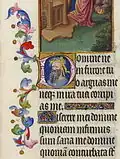 Domine ne
in furore tu
o arguas me
neque in ira tua corripi
as me.
Miserere mei domine
quoniam infirmus
sum sana me domine
quoniam conturbata